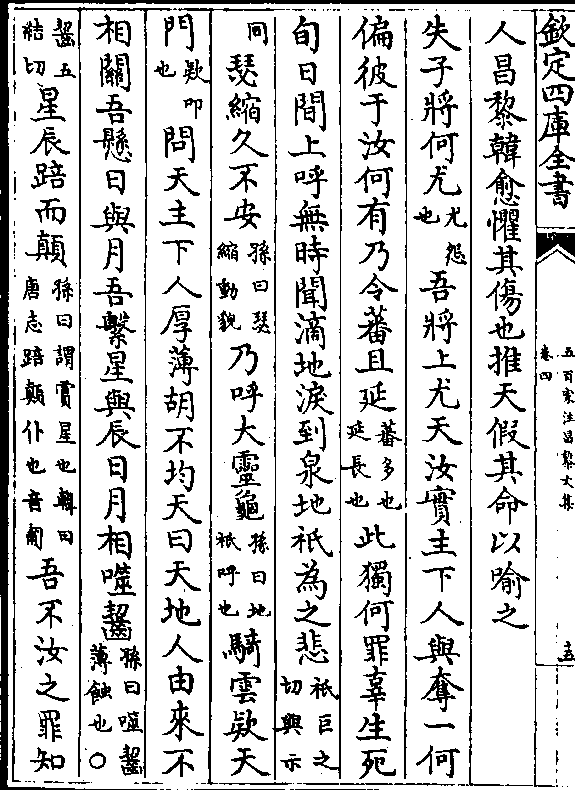 欽定四庫全書
五百家注昌黎文集
卷四
五
人昌黎韓愈懼其傷也推天假其命以喻之
失子將何尤尤怨也吾將上尤天汝實主下人與奪一何
偏彼于汝何有乃令蕃且延蕃多也延長也此獨何罪辜生死
旬日間上呼無時聞滴地淚到泉地祇為之悲祇巨之切與示
同瑟縮久不安孫曰瑟縮動貌乃呼大靈龜孫曰地祇呼也騎雲欵天
門欵叩也問天主下人厚薄胡不均天曰天地人由來不
相關吾懸日與月吾繫星與辰日月相噬齧孫曰噬齧薄蝕也○
齧五結切星辰踣而顛孫曰謂霣星也韓曰唐志踣顛仆也音匐吾不汝之罪知